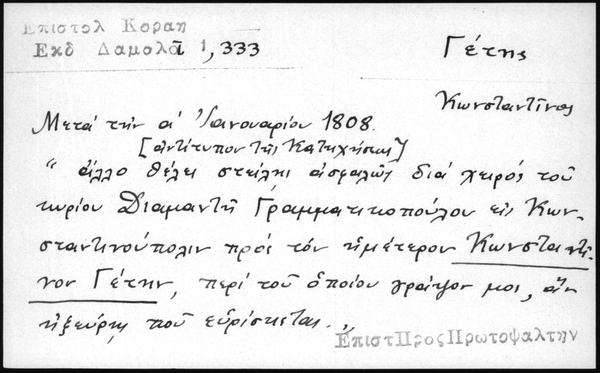 Επιστολ Κοραη
Εκδ Δαμαλᾶ 1,333
Γέτης
Κωνσταντῖνος
Μετά την α' Ἰανουαρίου 1808.
[ἀντίτυπον τῆς Κατηχήσεως]
"ἄλλο θέλει στείλῃ ἀσφαλῶς διά χειρός τοῦ
κυρίου Διαμαντῆ Γραμματικοπούλου εἰς Κων-
σταντινούπολιν πρός τόν ἡμέτερον Κωνσταντῖ-
νον Γέτην, περί τοῦ ὁποίου γράψον μοι, ἄν
ἠξεύρῃς ποῦ εὑρίσκεται.,,
ΕπιστΠροςΠρωτοψαλτην